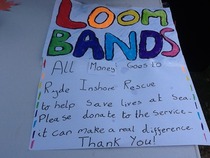 LOOM
BANDS
All Money Goes to
Ryde Inshore Rescue
to help save lives at sea.
Please donate to the service -
it can make a real difference.
Thank You!